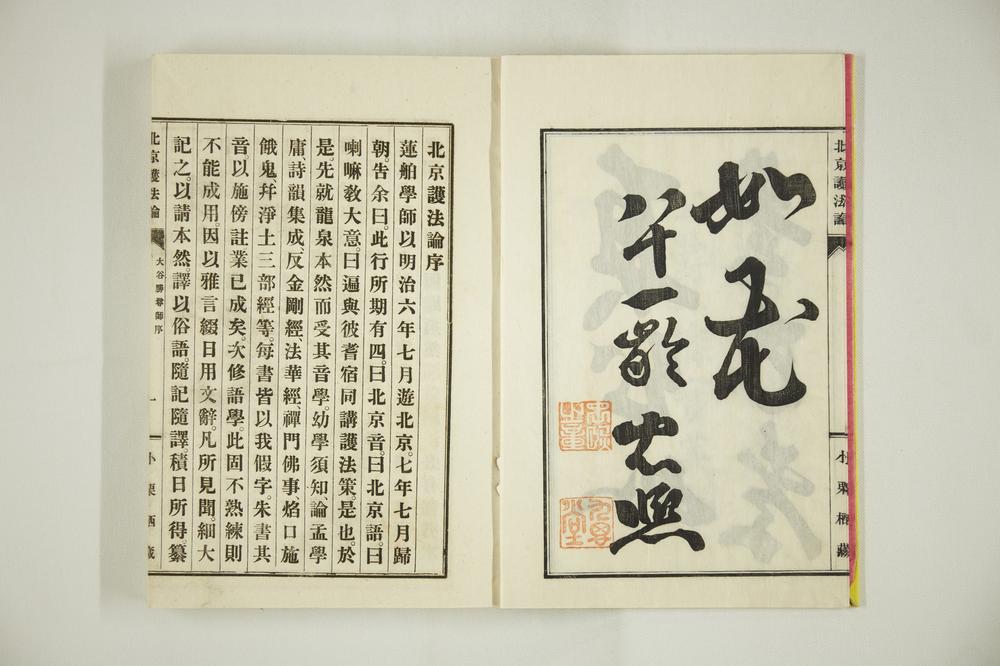 如花
八十一齡 忠熈
北京護法論
小栗栖藏
北京護法論序
蓮舶學師以明治六年七月遊北京。七年七月歸
朝。告余曰。此行所期有四。曰北京音。曰北京語。曰
喇嘛敎大意。曰遍與彼耆宿同講護法策。是也。於
是。先就龍泉本然而受其音學。幼學須知、論孟學
庸、詩韻集成、反金剛經、法華經、禪門佛事、焰口施
餓鬼、幷淨土三部經等。每書皆以我假字。朱書其
音以施傍註業已成矣。次修語學。此固不熟練則
不能成用。因以雅言綴日用文辭。凡所見聞。細大
記之。以請本然。譯以俗語。隨記隨譯。積日所得。纂
北京護法論
大谷勝尊師序
一
小栗栖藏